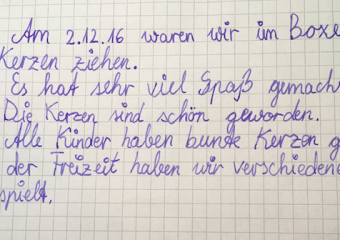 Am 2.12.16 waren wir im Boxe
Kerzen ziehen.
Es hat sehr viel Spaß gemach
Die Kerzen sind schön geworden.
Alle Kinder haben bunte Kerzen g
der Freizeit haben wir verschieden
spielt.